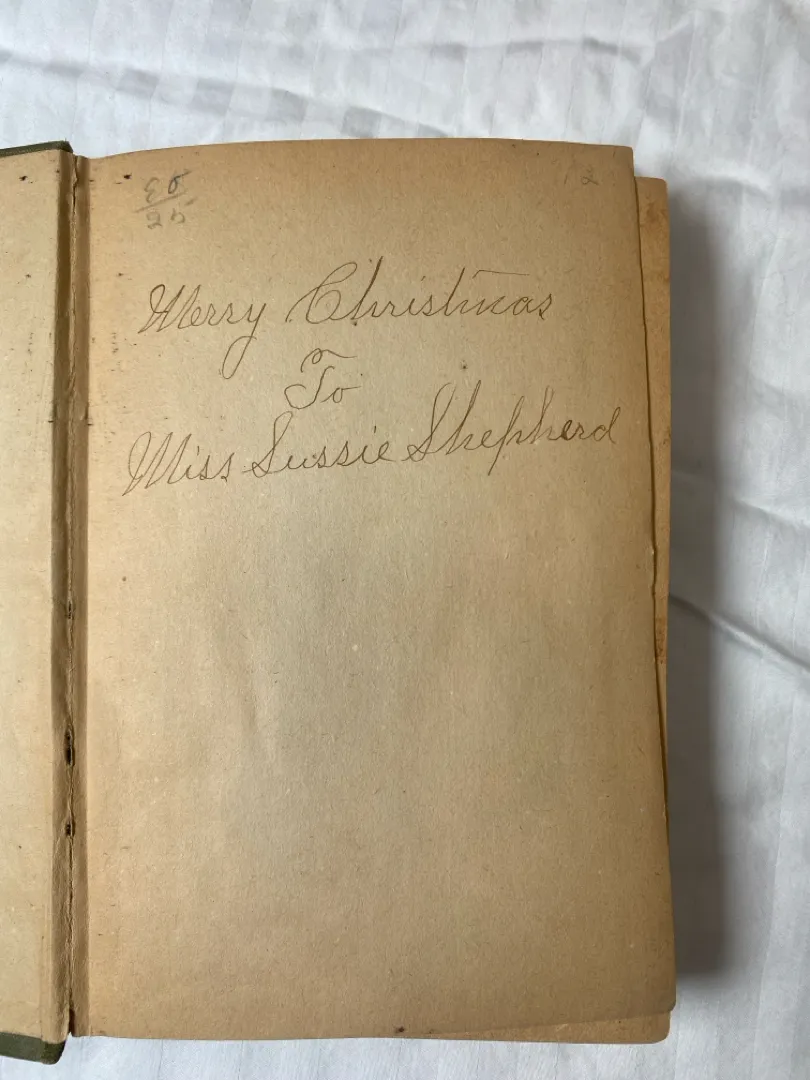 12
Merry Christmas
To
Miss Sussie Shepherd